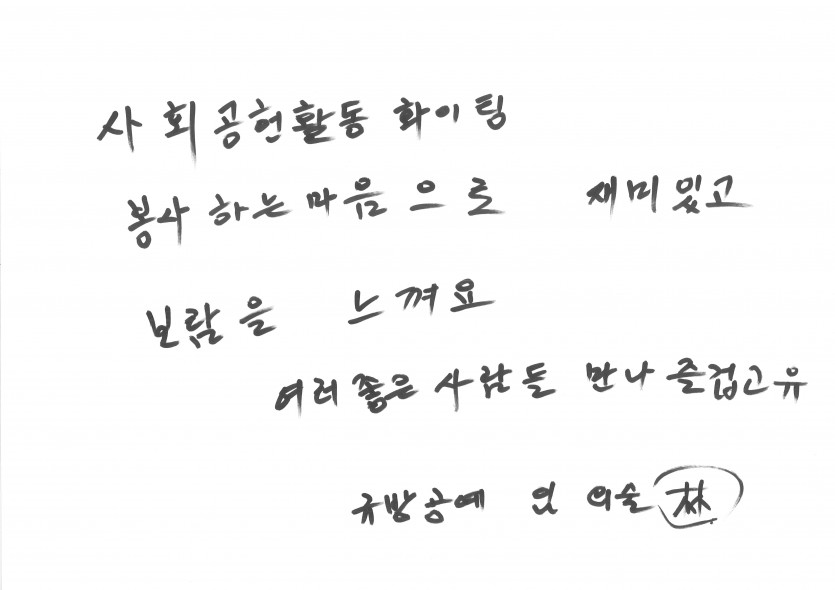 사회공헌활동 화이팅
봉사하는마음으로 재미있고
보람을 느껴요
여러좋은사람들 만나 즐겁고유
규방공예 임의숙 林